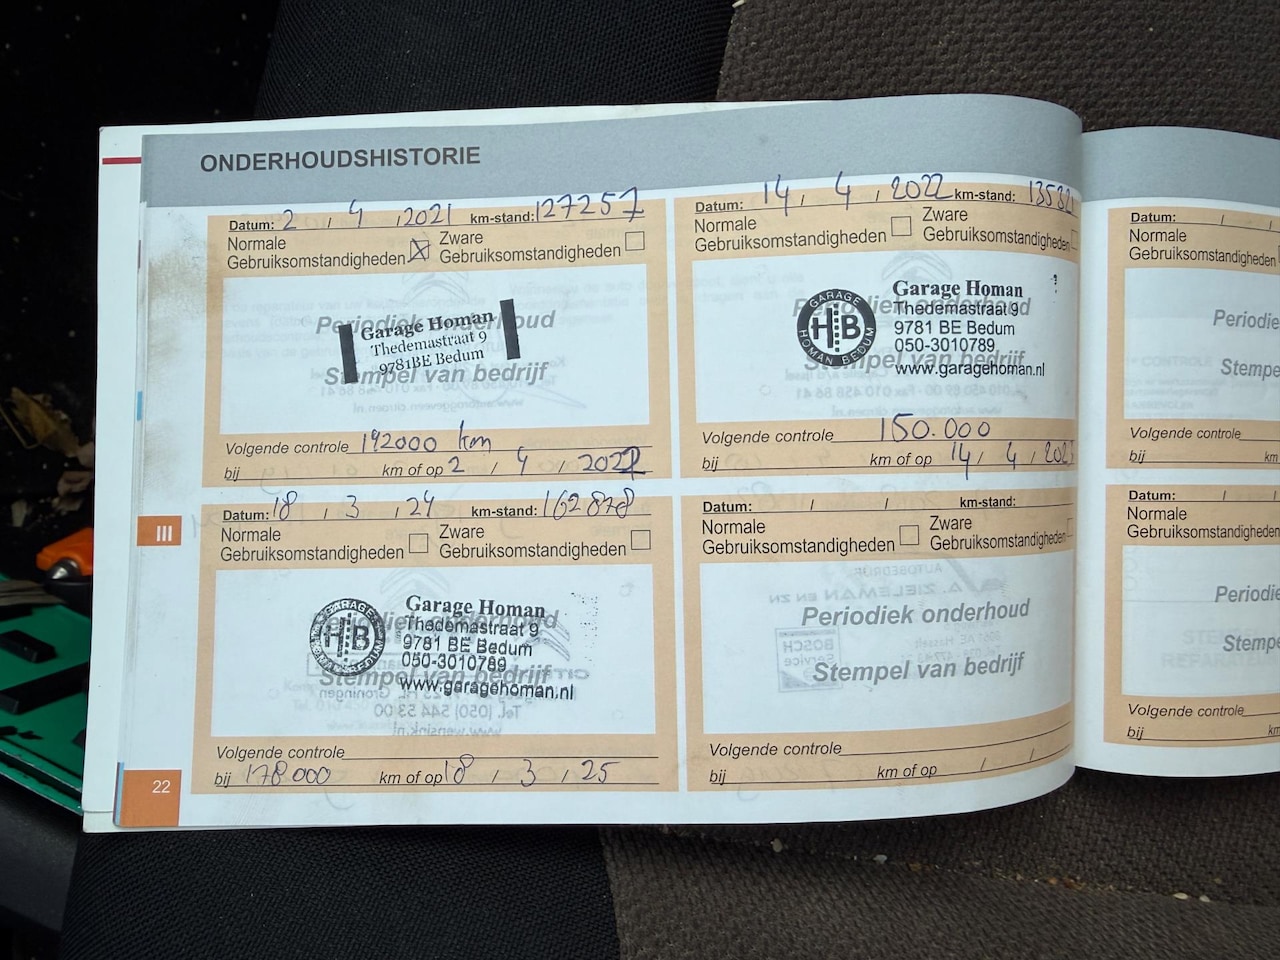 ONDERHOUDSHISTORIE
Datum: 2 / 4 / 2021 km-stand: 127257
Normale
Gebruiksomstandigheden
Zware
Gebruiksomstandigheden
Periodiek onderhoud
Stempel van bedrijf
Garage Homan
Thedemastraat 9
9781BE Bedum
Volgende controle 142000 km
bij km of op 2 / 4 / 2022
Datum: 14 / 4 / 2022 km-stand:
Normale
Gebruiksomstandigheden
Zware
Gebruiksomstandigheden
Periodiek onderhoud
Stempel van bedrijf
GARAGE
HB
HOMAN BEDUM
Garage Homan
Thedemastraat 9
9781 BE Bedum
050-3010789
www.garagehoman.nl
Volgende controle 150.000
bij km of op 14 / 4 /
Datum: 18 / 3 / 24 km-stand: 162878
Normale
Gebruiksomstandigheden
Zware
Gebruiksomstandigheden
Periodiek onderhoud
Stempel van bedrijf
GARAGE
HB
HOMAN BEDUM
Garage Homan
Thedemastraat 9
9781 BE Bedum
050-3010789
www.garagehoman.nl
Volgende controle
bij 178000 km of op 18 / 3 / 25
Datum: / / km-stand:
Normale
Gebruiksomstandigheden
Zware
Gebruiksomstandigheden
Periodiek onderhoud
Stempel van bedrijf
Volgende controle
bij km of op / /
III
22
Datum: / /
Normale
Gebruiksomstandigheden
Periodie
Stempe
Volgende controle
bij km
Datum: / /
Normale
Gebruiksomstandigheden
Periodie
Stempe
Volgende controle
bij km